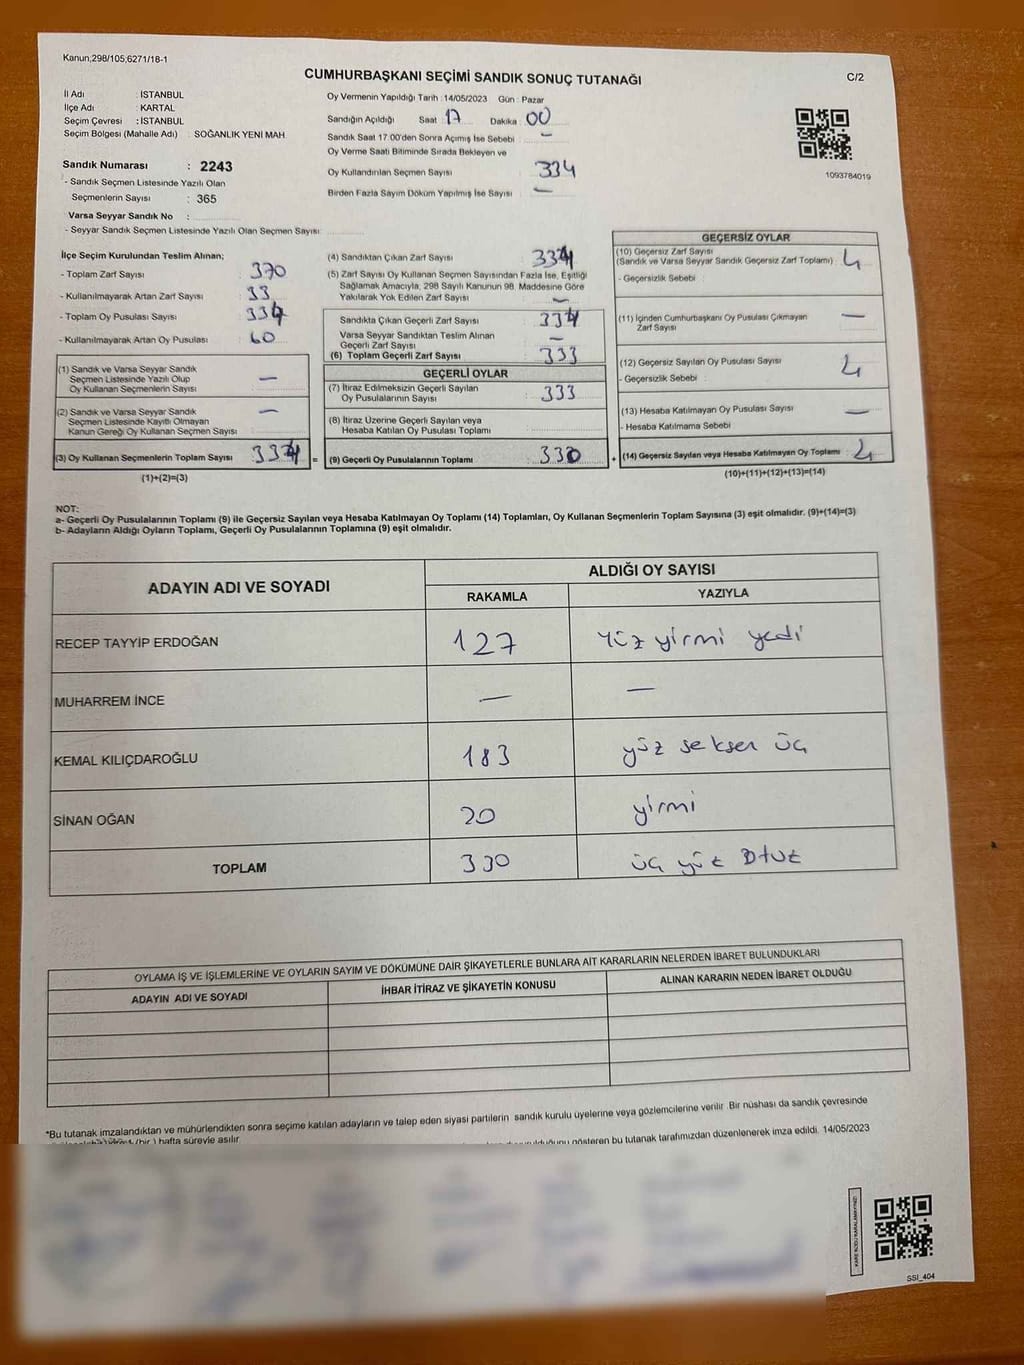 Kanun;298/105;6271/18-1
CUMHURBAŞKANI SEÇİMİ SANDIK SONUÇ TUTANAĞI
C/2
İl Adı : İSTANBUL
İlçe Adı : KARTAL
Seçim Çevresi : İSTANBUL
Seçim Bölgesi (Mahalle Adı) : SOĞANLIK YENİ MAH.
Sandık Numarası : 2243
- Sandık Seçmen Listesinde Yazılı Olan
Seçmenlerin Sayısı : 365
Varsa Seyyar Sandık No :
- Seyyar Sandık Seçmen Listesinde Yazılı Olan Seçmen Sayısı:
Oy Vermenin Yapıldığı Tarih : 14/05/2023 Gün : Pazar
Sandığın Açıldığı Saat 17 Dakika 00
Sandık Saat 17:00'den Sonra Açımış İse Sebebi : —
Oy Verme Saati Bitiminde Sırada Bekleyen ve
Oy Kullandırılan Seçmen Sayısı 334
Birden Fazla Sayım Döküm Yapılmış İse Sayısı : —
1093784019
İlçe Seçim Kurulundan Teslim Alınan;
- Toplam Zarf Sayısı : 370
- Kullanılmayarak Artan Zarf Sayısı : 33
- Toplam Oy Pusulası Sayısı : 334
- Kullanılmayarak Artan Oy Pusulası : 60
(1) Sandık ve Varsa Seyyar Sandık
Seçmen Listesinde Yazılı Olup
Oy Kullanan Seçmenlerin Sayısı : —
(2) Sandık ve Varsa Seyyar Sandık
Seçmen Listesinde Kayıtlı Olmayan
Kanun Gereği Oy Kullanan Seçmen Sayısı : —
(3) Oy Kullanan Seçmenlerin Toplam Sayısı : 334 =
(1)+(2)=(3)
(4) Sandıktan Çıkan Zarf Sayısı : 334
(5) Zarf Sayısı Oy Kullanan Seçmen Sayısından Fazla İse, Eşitliği
Sağlamak Amacıyla, 298 Sayılı Kanunun 98. Maddesine Göre
Yakılarak Yok Edilen Zarf Sayısı : —
Sandıkta Çıkan Geçerli Zarf Sayısı : 334
Varsa Seyyar Sandıktan Teslim Alınan
Geçerli Zarf Sayısı : —
(6) Toplam Geçerli Zarf Sayısı : 333
GEÇERLİ OYLAR
(7) İtiraz Edilmeksizin Geçerli Sayılan
Oy Pusulalarının Sayısı : 333
(8) İtiraz Üzerine Geçerli Sayılan veya
Hesaba Katılan Oy Pusulası Toplamı :
(9) Geçerli Oy Pusulalarının Toplamı : 330 +
GEÇERSİZ OYLAR
(10) Geçersiz Zarf Sayısı
(Sandık ve Varsa Seyyar Sandık Geçersiz Zarf Toplamı) : 4
- Geçersizlik Sebebi :
(11) İçinden Cumhurbaşkanı Oy Pusulası Çıkmayan
Zarf Sayısı : —
(12) Geçersiz Sayılan Oy Pusulası Sayısı : 4
- Geçersizlik Sebebi :
(13) Hesaba Katılmayan Oy Pusulası Sayısı : —
- Hesaba Katılmama Sebebi :
(14) Geçersiz Sayılan veya Hesaba Katılmayan Oy Toplamı : 4
(10)+(11)+(12)+(13)=(14)
NOT:
a- Geçerli Oy Pusulalarının Toplamı (9) ile Geçersiz Sayılan veya Hesaba Katılmayan Oy Toplamı (14) Toplamları, Oy Kullanan Seçmenlerin Toplam Sayısına (3) eşit olmalıdır. (9)+(14)=(3)
b- Adayların Aldığı Oyların Toplamı, Geçerli Oy Pusulalarının Toplamına (9) eşit olmalıdır.
ADAYIN ADI VE SOYADI
ALDIĞI OY SAYISI
RAKAMLA YAZIYLA
RECEP TAYYİP ERDOĞAN 127 Yüz yirmi yedi
MUHARREM İNCE — —
KEMAL KILIÇDAROĞLU 183 yüz seksen üç
SİNAN OĞAN 20 yirmi
TOPLAM 330 üç yüz Otuz
OYLAMA İŞ VE İŞLEMLERİNE VE OYLARIN SAYIM VE DÖKÜMÜNE DAİR ŞİKAYETLERLE BUNLARA AİT KARARLARIN NELERDEN İBARET BULUNDUKLARI
ADAYIN ADI VE SOYADI İHBAR İTİRAZ VE ŞİKAYETİN KONUSU ALINAN KARARIN NEDEN İBARET OLDUĞU
*Bu tutanak imzalandıktan ve mühürlendikten sonra seçime katılan adayların ve talep eden siyasi partilerin sandık kurulu üyelerine veya gözlemcilerine verilir. Bir nüshası da sandık çevresinde
(bir) hafta süreyle asılır.
gösteren bu tutanak tarafımızdan düzenlenerek imza edildi. 14/05/2023
SSİ_404